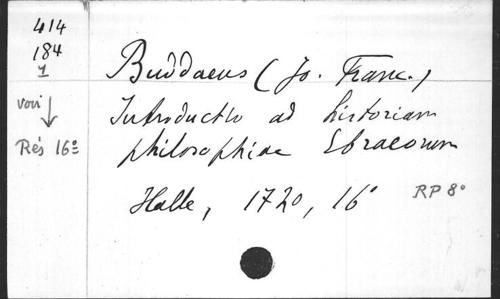 414
184
1
voir
Rés 16º
Buddaeus (Jo. Franc.)
Introductio ad historiam
philosophiae Ebraeorum
Halle, 1720, 16º
RP 8º